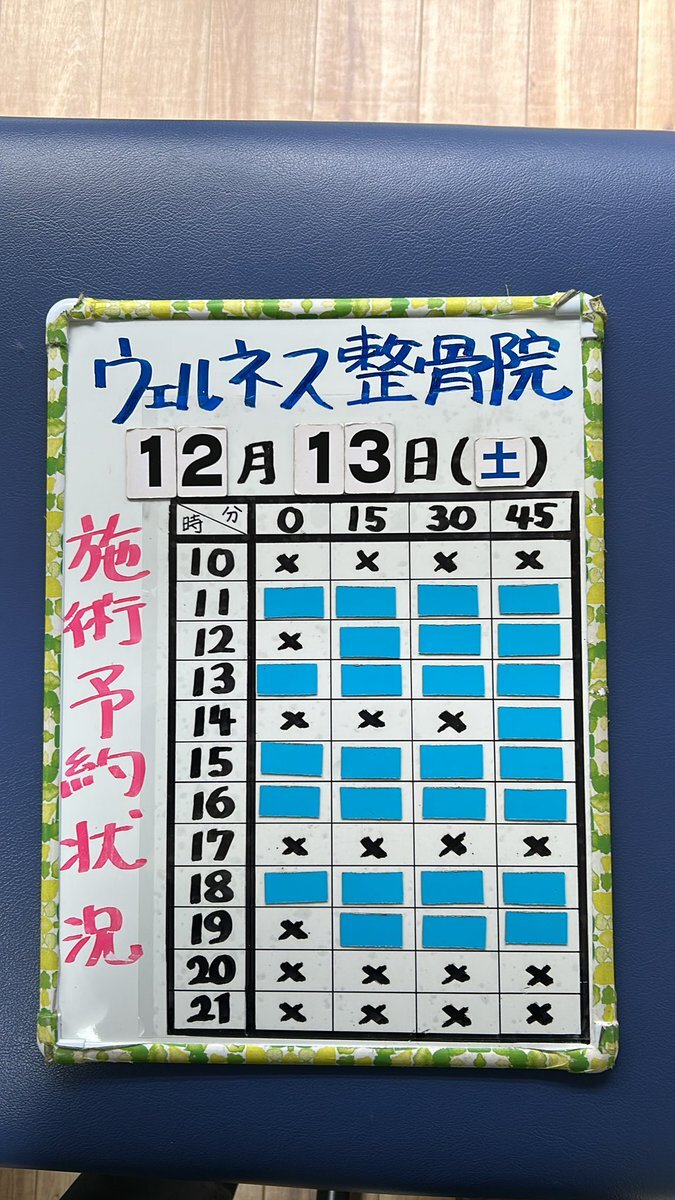 ウェルネス整骨院
12月13日(土)
施術予約状況
時 分 0 15 30 45
10 × × × ×
11
12 ×
13
14 × × ×
15
16
17 × × × ×
18
19 ×
20 × × × ×
21 × × × ×